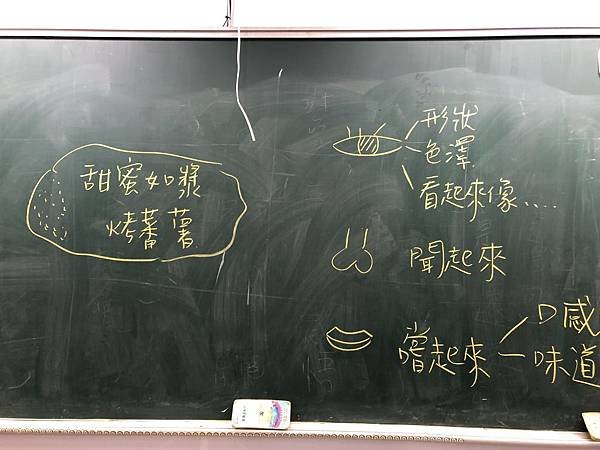 甜蜜如漿
烤蕃薯
形狀
色澤
看起來像....
聞起來
嚐起來
口感
味道